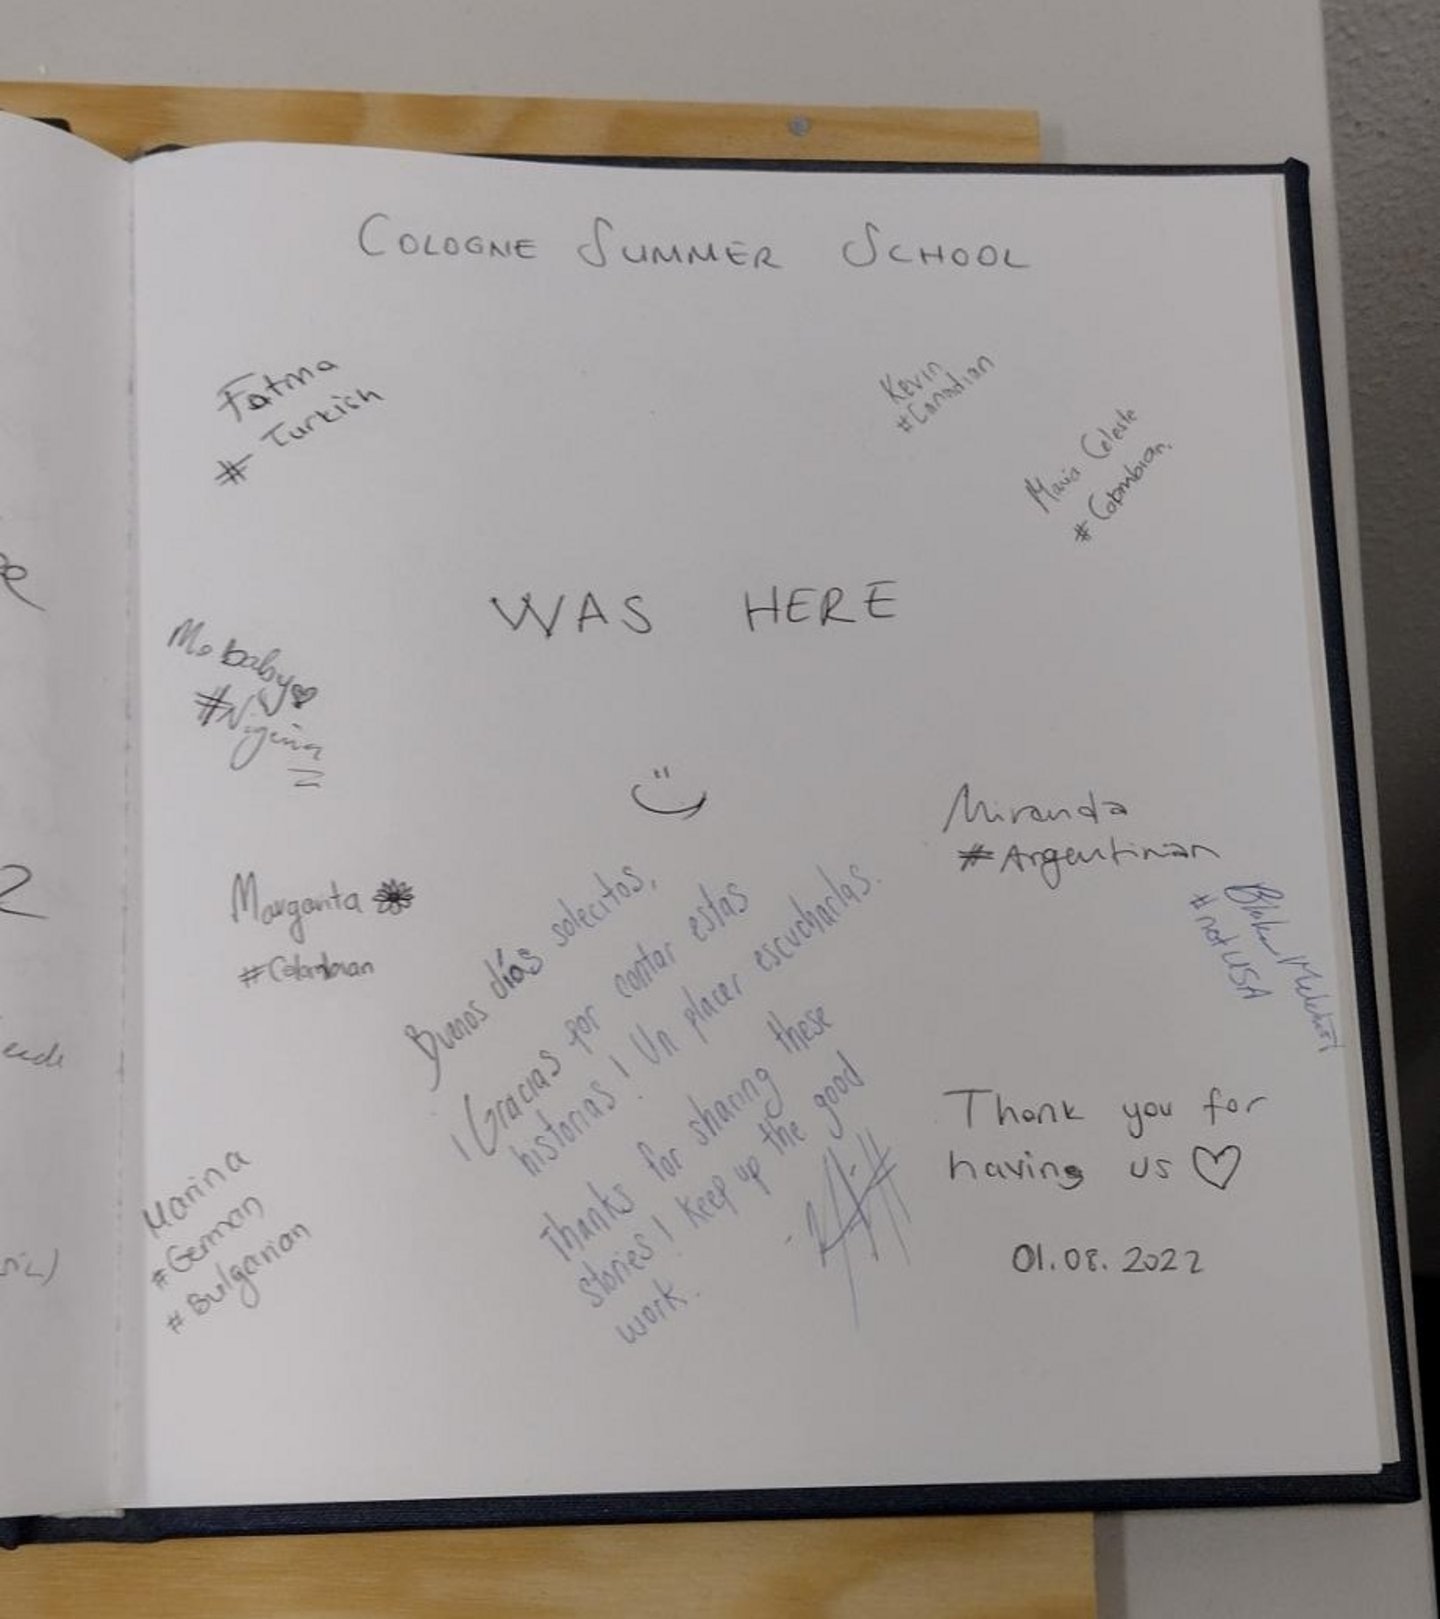 COLOGNE SUMMER SCHOOL
Fatma
# Turkish
Kevin
#Canadian
Maria Celeste
#Colombian.
WAS HERE
Mo baby♥
#Nigeria
Miranda
#Argentinian
Margarita
#Colombian
Blake
#notUSA
Buenos días solecitos,
¡Gracias por contar estas
historias! Un placer escucharlas.
Thanks for sharing these
stories! Keep up the good
work.
Marina
#German
#Bulgarian
Thank you for
having us ♡
01.08.2022